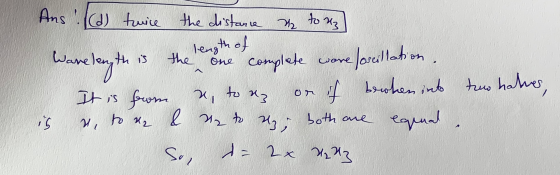 Ans : (d) twice the distance x₂ to x₃
Wavelength is the ^ length of one complete wave/oscillation.
It is from x₁ to x₃ or if broken into two halves,
is x₁ to x₂ & x₂ to x₃; both are equal.
So, λ = 2 × x₂x₃